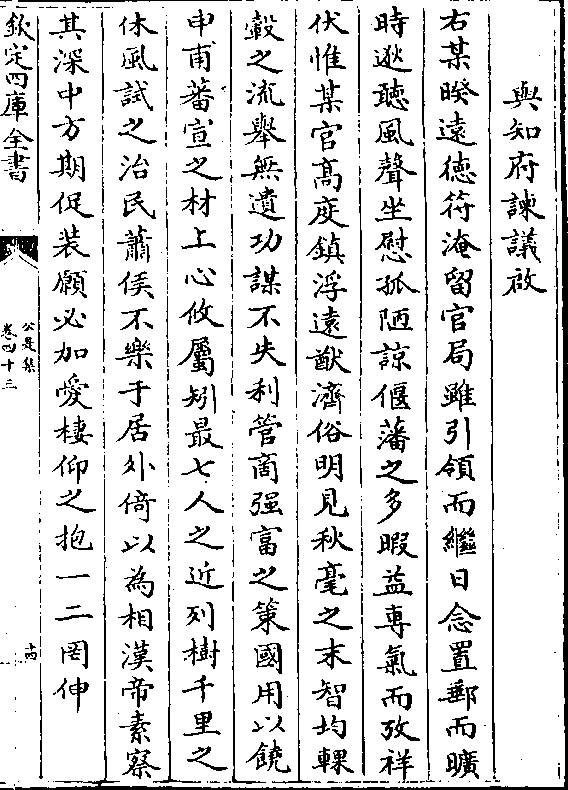 與知府諫議啟
右某暌遠德符淹留官局雖引領而繼日念置郵而曠
時逖聽風聲坐慰孤陋諒偃藩之多暇益専氣而攷祥
伏惟某官髙度鎮浮遠猷濟俗明見秋毫之末智均輠
轂之流舉無遺功謀不失利管商强富之策國用以饒
申甫蕃宣之材上心攸屬矧最七人之近列樹千里之
休風試之治民蕭侯不樂于居外倚以為相漢帝素察
其深中方期促裝願必加愛棲仰之抱一二罔伸
欽定四庫全書
公是集
卷四十三
十四